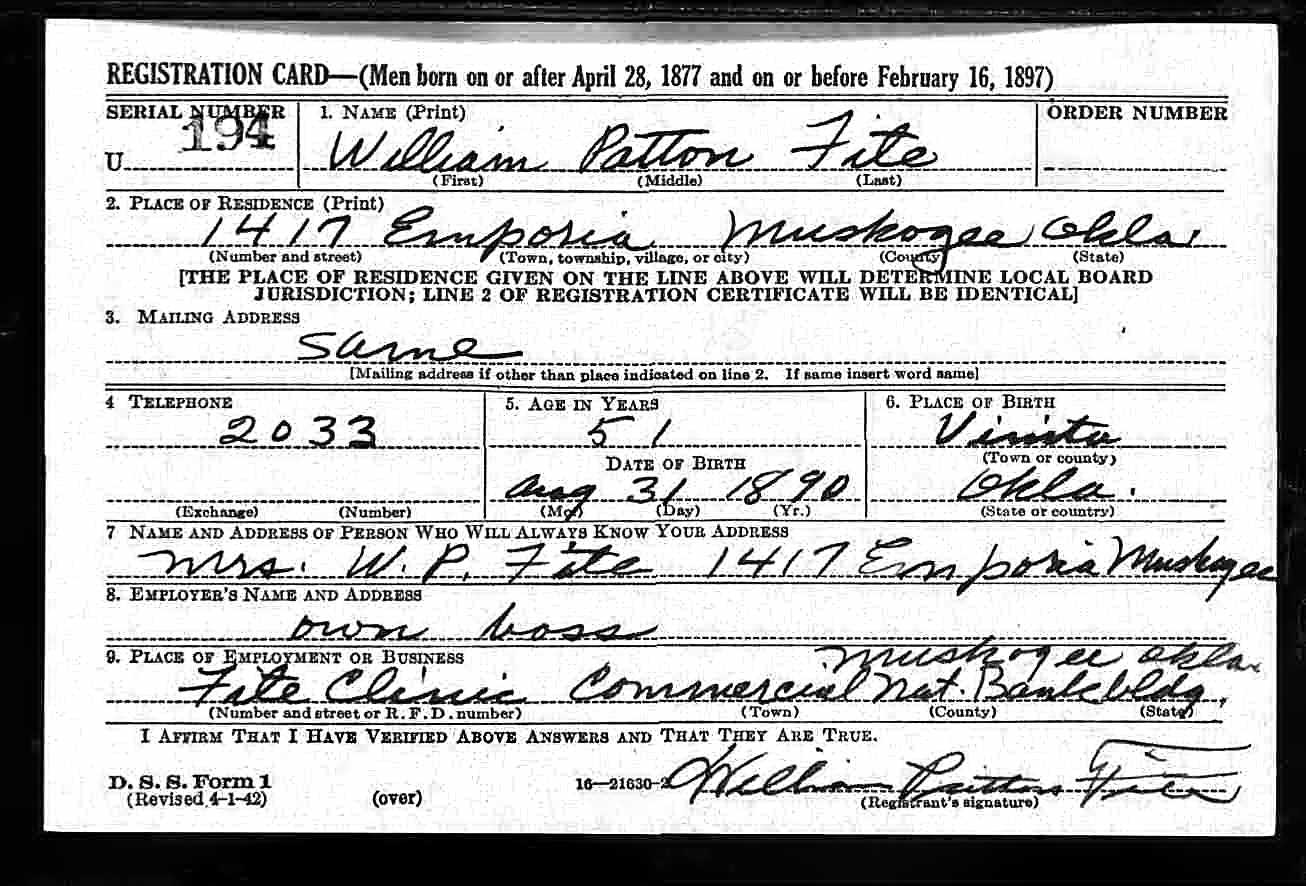 REGISTRATION CARD—(Men born on or after April 28, 1877 and on or before February 16, 1897)
SERIAL NUMBER 1. NAME (Print) ORDER NUMBER
194
U William Patton Fite
(First) (Middle) (Last)
2. PLACE OF RESIDENCE (Print)
1417 Emporia Muskogee Okla.
(Number and street) (Town, township, village, or city) (County) (State)
[THE PLACE OF RESIDENCE GIVEN ON THE LINE ABOVE WILL DETERMINE LOCAL BOARD
JURISDICTION; LINE 2 OF REGISTRATION CERTIFICATE WILL BE IDENTICAL]
3. MAILING ADDRESS
Same
[Mailing address if other than place indicated on line 2. If same insert word same]
4 TELEPHONE 5. AGE IN YEARS 6. PLACE OF BIRTH
2033 51 Vinita
DATE OF BIRTH (Town or county)
Aug 31 1890 Okla.
(Exchange) (Number) (Mo.) (Day) (Yr.) (State or country)
7 NAME AND ADDRESS OF PERSON WHO WILL ALWAYS KNOW YOUR ADDRESS
Mrs. W. P. Fite 1417 Emporia Muskogee
8. EMPLOYER'S NAME AND ADDRESS
own boss
9. PLACE OF EMPLOYMENT OR BUSINESS Muskogee Okla.
Fite Clinic Commercial Nat. Bank bldg.
(Number and street or R. F. D. number) (Town) (County) (State)
I AFFIRM THAT I HAVE VERIFIED ABOVE ANSWERS AND THAT THEY ARE TRUE.
D. S. S. Form 1 16—21630-2 William Patton Fite
(Revised 4-1-42) (over) (Registrant's signature)